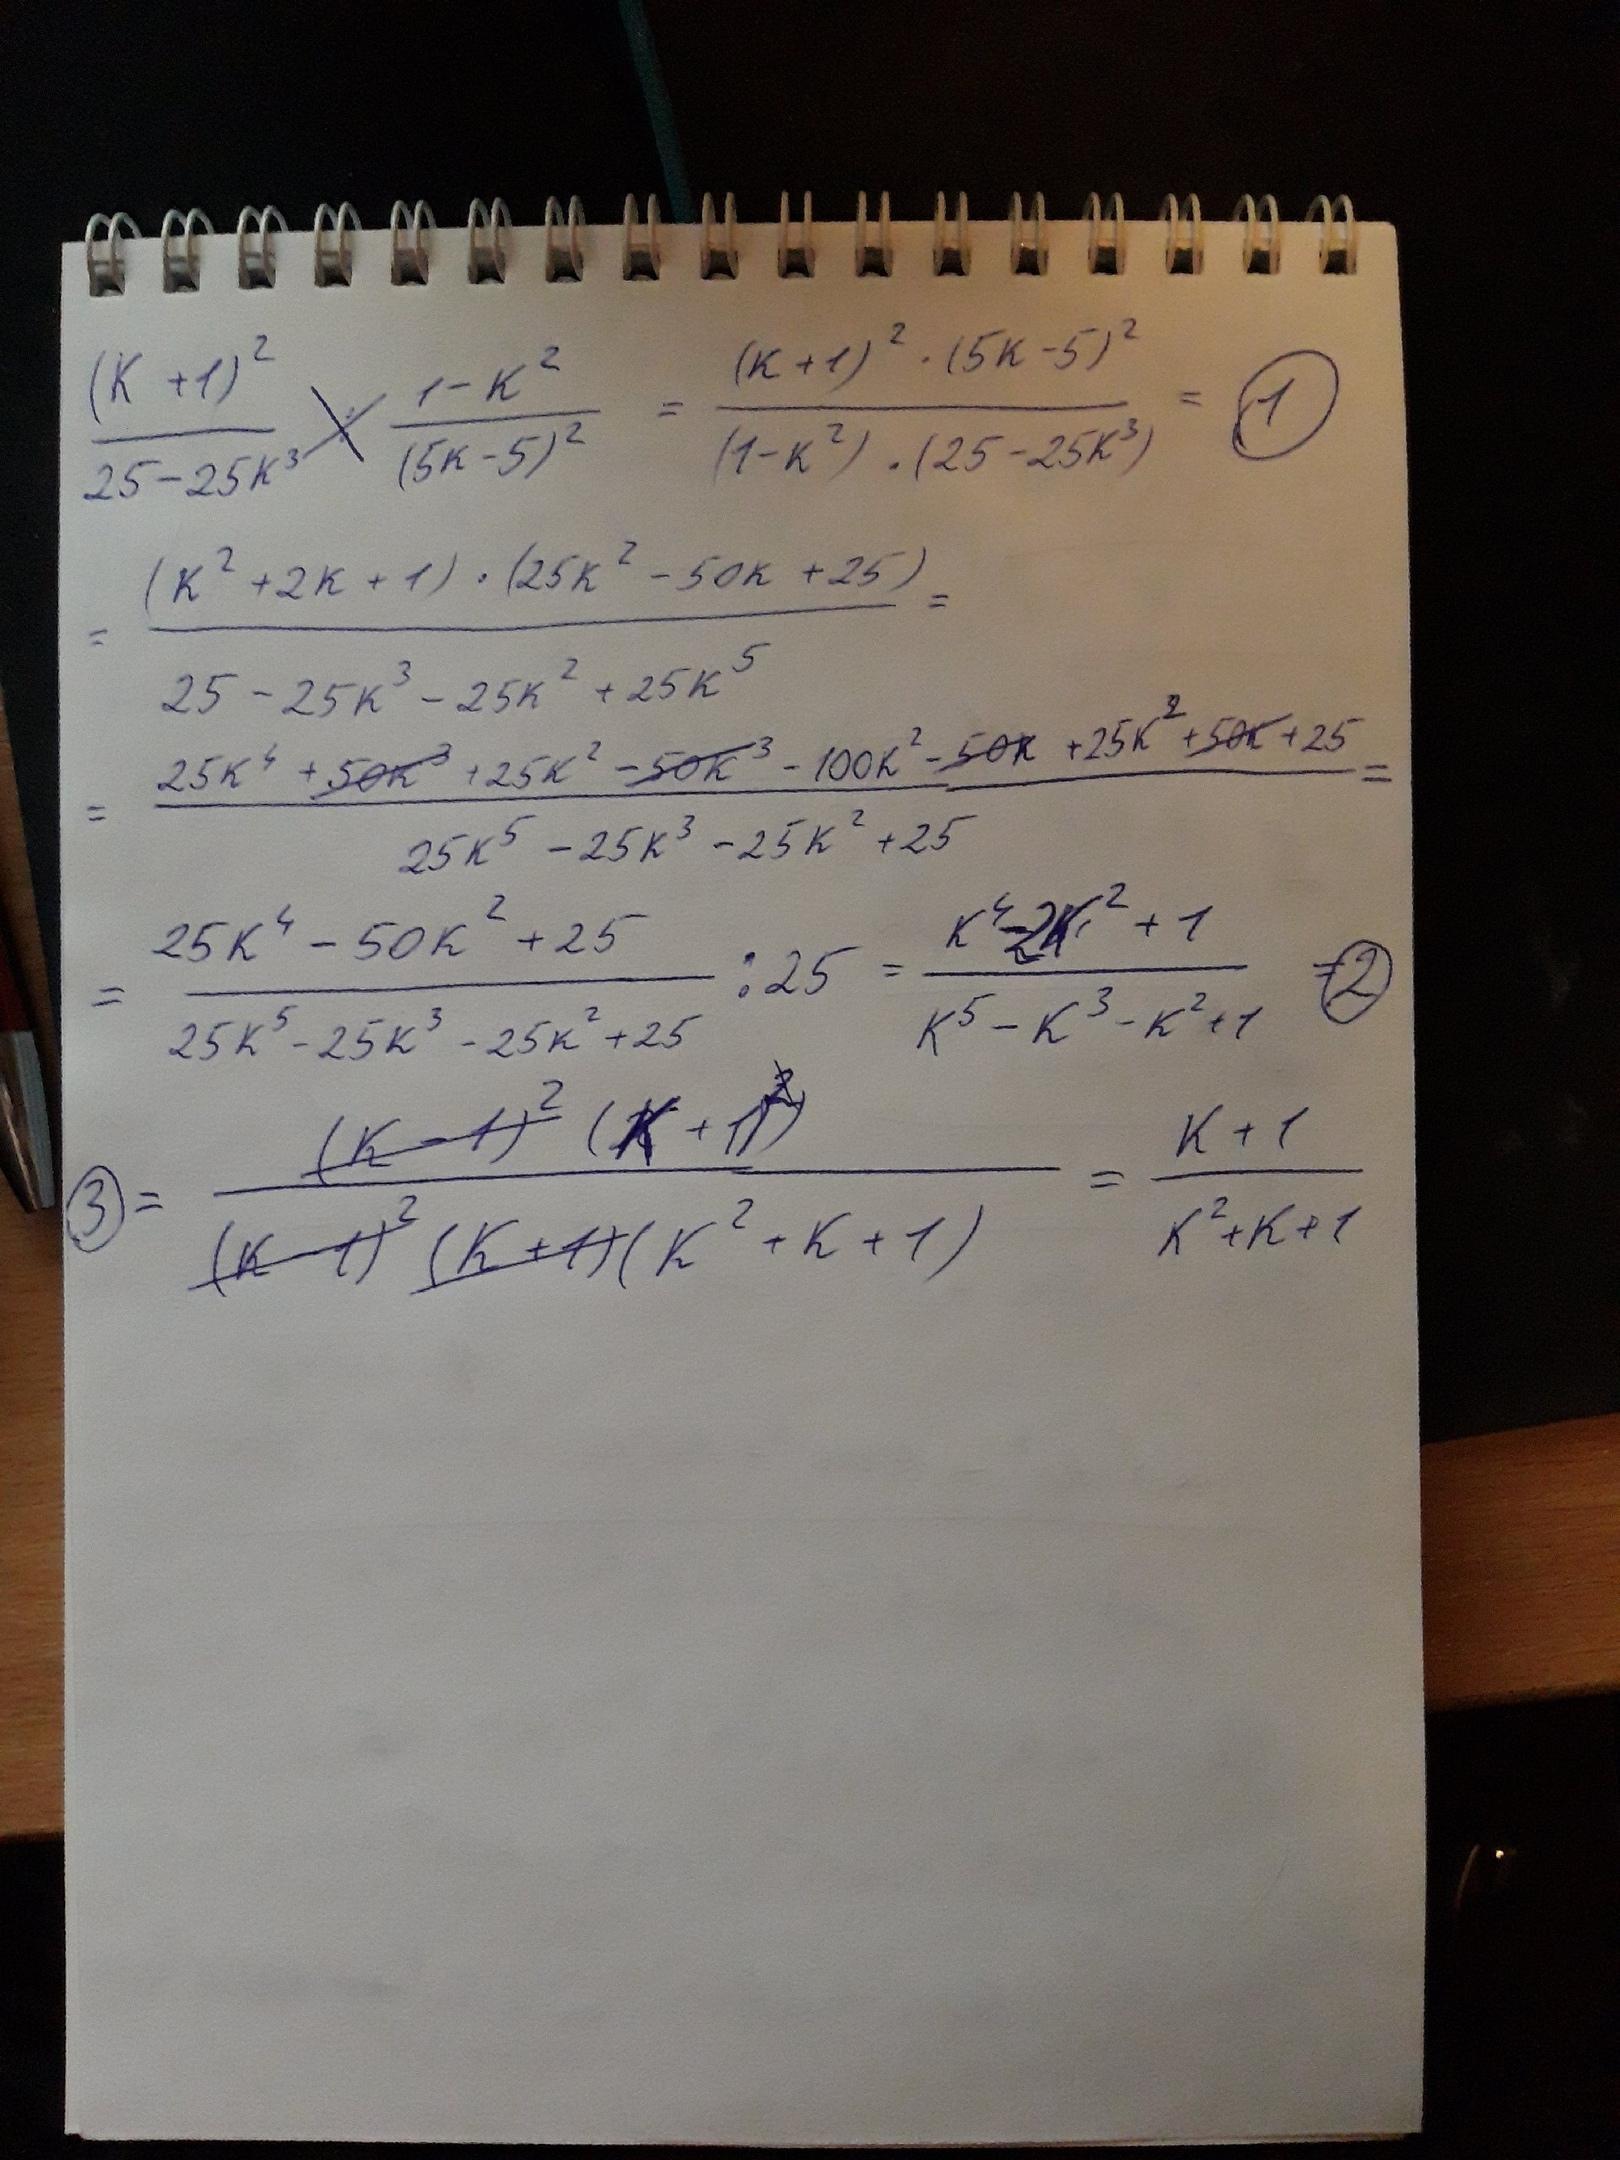 (K+1)² / 25-25K³ : 1-K² / (5K-5)² = (K+1)² · (5K-5)² / (1-K²) · (25-25K³) = 1
= (K²+2K+1) · (25K²-50K+25) / 25-25K³-25K²+25K⁵ =
= 25K⁴+50K³+25K²-50K³-100K²-50K+25K²+50K+25 / 25K⁵-25K³-25K²+25 =
= 25K⁴-50K²+25 / 25K⁵-25K³-25K²+25 : 25 = K⁴-2K²+1 / K⁵-K³-K²+1 = 2
3 = (K-1)² (K+1)² / (K-1)² (K+1)(K²+K+1) = K+1 / K²+K+1